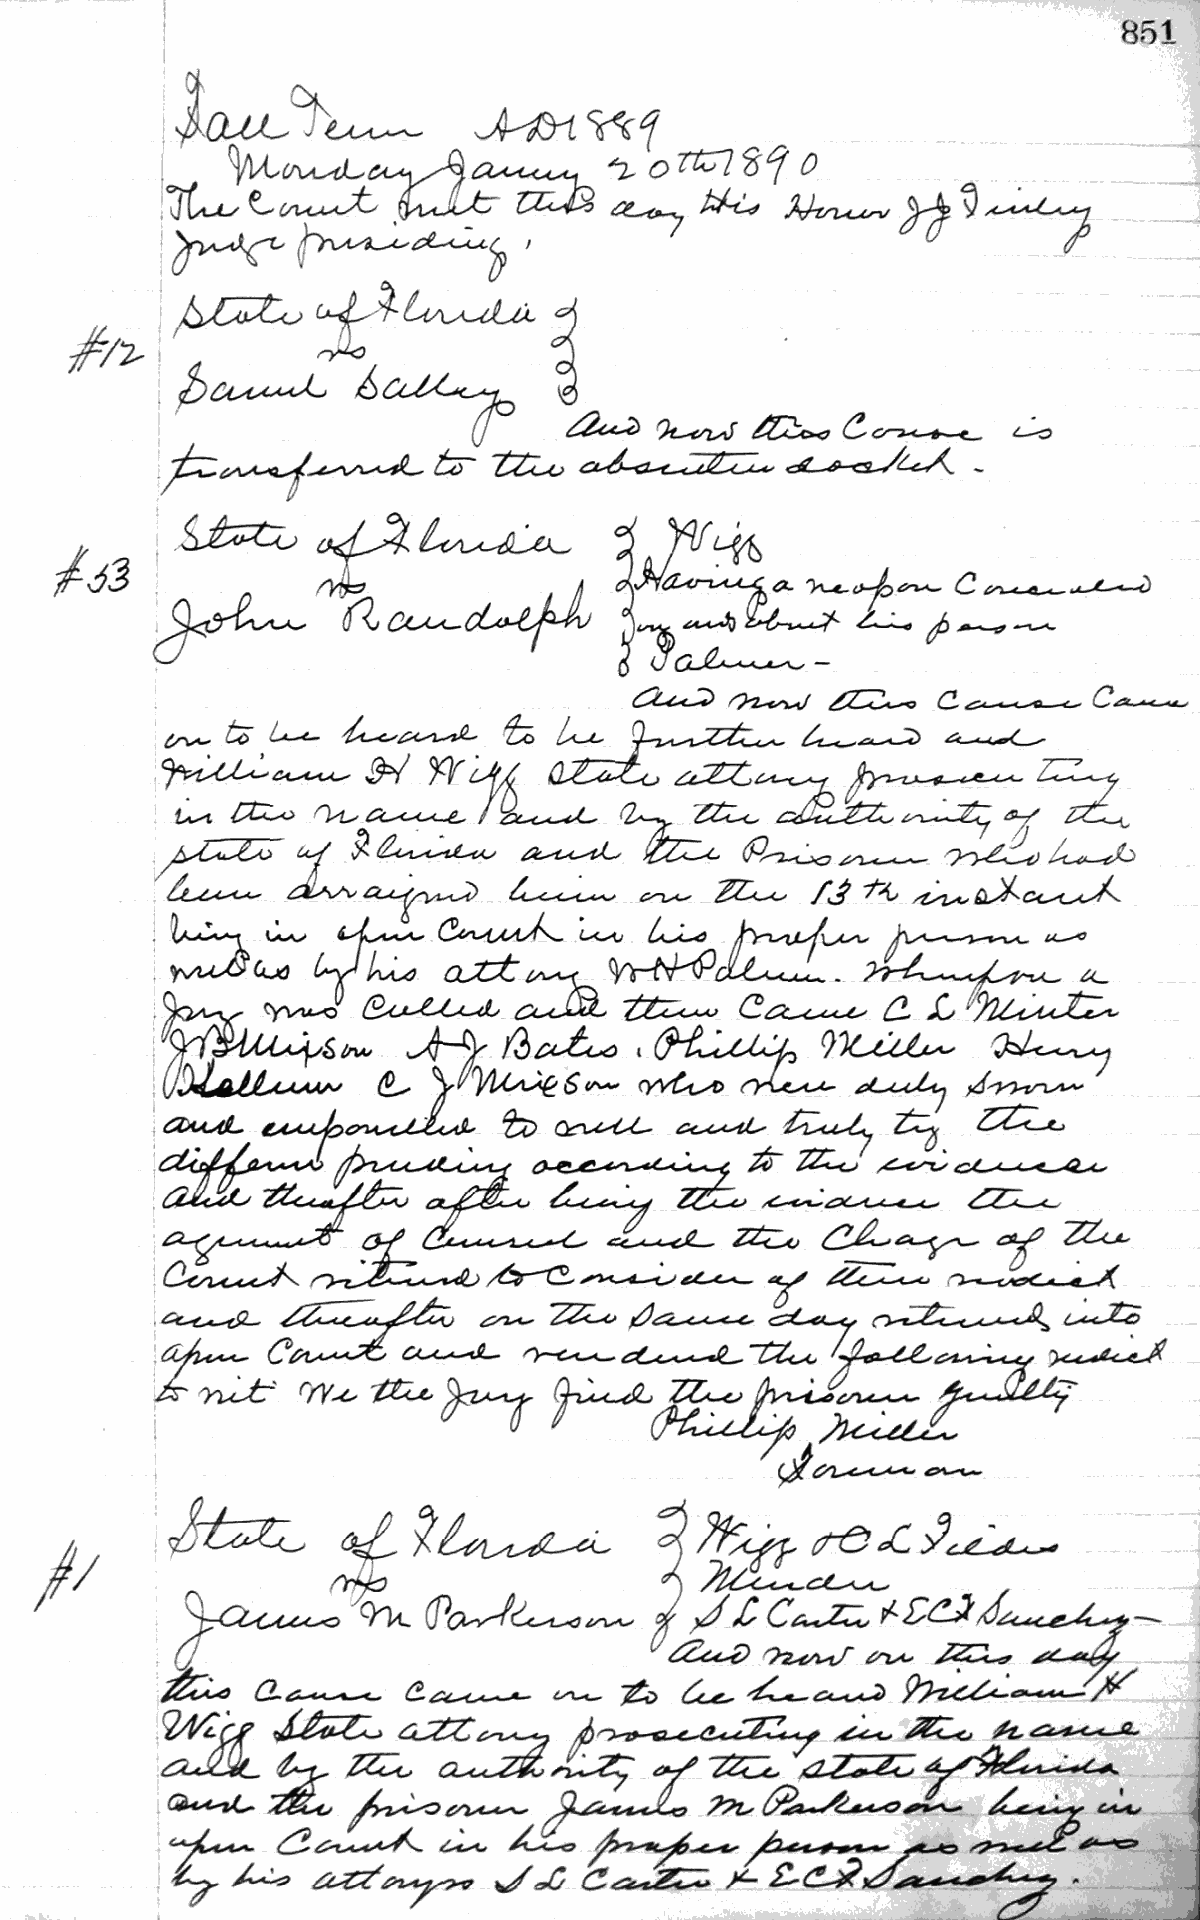 851
Fall Term AD 1889
Monday Janny 20th 1890
The Court met this day His Honor J J Finley
Judge presiding.
State of Florida
#12
vs
Samul Salley
And now this Couse is
transferred to the absentee docket -
State of Florida Wigg
#53
vs Having a weapon Concealed
John Randolph on and about his person
Palmer -
And now this Cause Came
on to be heard to be further heard and
William H Wigg State attorny prosecuting
in the name and by the authority of the
state of Florida and the Prisoner who had
been arraigned herein on the 13th instant
being in open Court in his proper person as
well as by his attorny W H Palmer. Whereupon a
Jury was Called and then Came C L Minter
J B Mixson A J Bates, Phillip Miller Henry
Hallum C J Mixson who were duly sworn
and empanelled to well and truly try the
according to the evidence
and thereafter after the evidence the
argument of Counsel and the Charge of the
Court retired to Consider of their verdict
and thereafter on the same day returned into
open Court and rendered the following verdict
to wit We the Jury find the prisoner guilty
Phillip Miller
Foreman
State of Florida Wigg & C L Fildes
#1
vs Murder
James M Parkerson S L Carter & E C F Sanchez -
And now on this day
this Cause Came on to be heard William H
Wigg State attorny prosecuting in the name
and by the authority of the state of Florida
and the prisoner James M Parkerson being in
open Court in his proper person as well as
by his attorys S L Carter & E C F Sanchez.